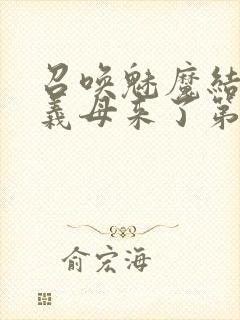 召唤魅魔结
義母来了第
俞宏海